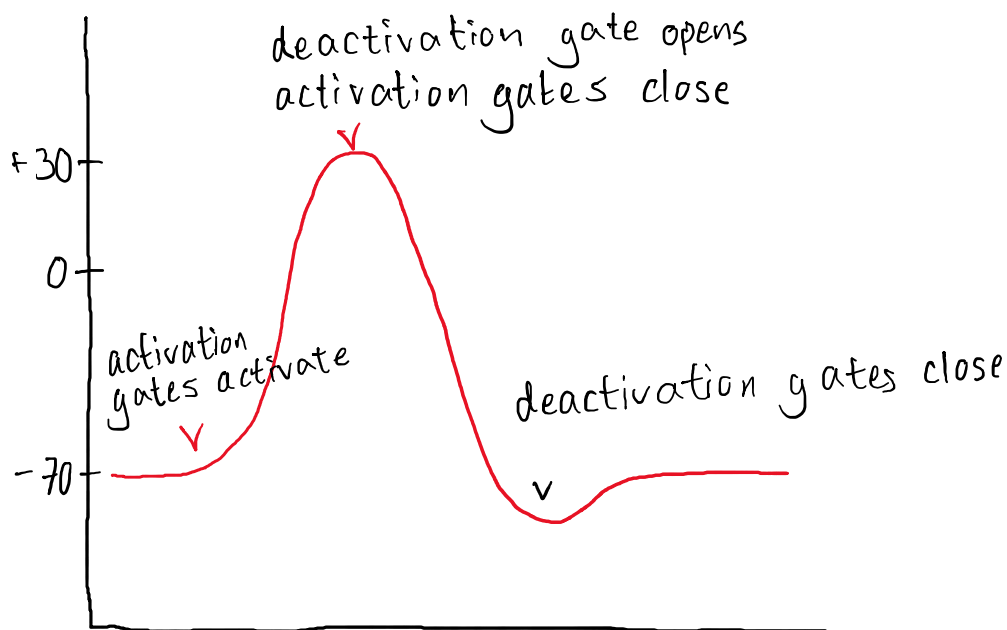 deactivation gate opens
activation gates close
+30
0
activation
gates activate
deactivation gates close
-70